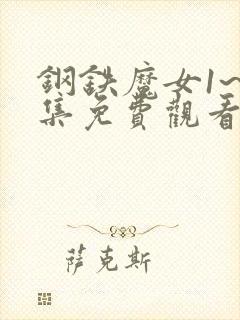 鋼鉄魔女1~
集免費觀看
萨克斯